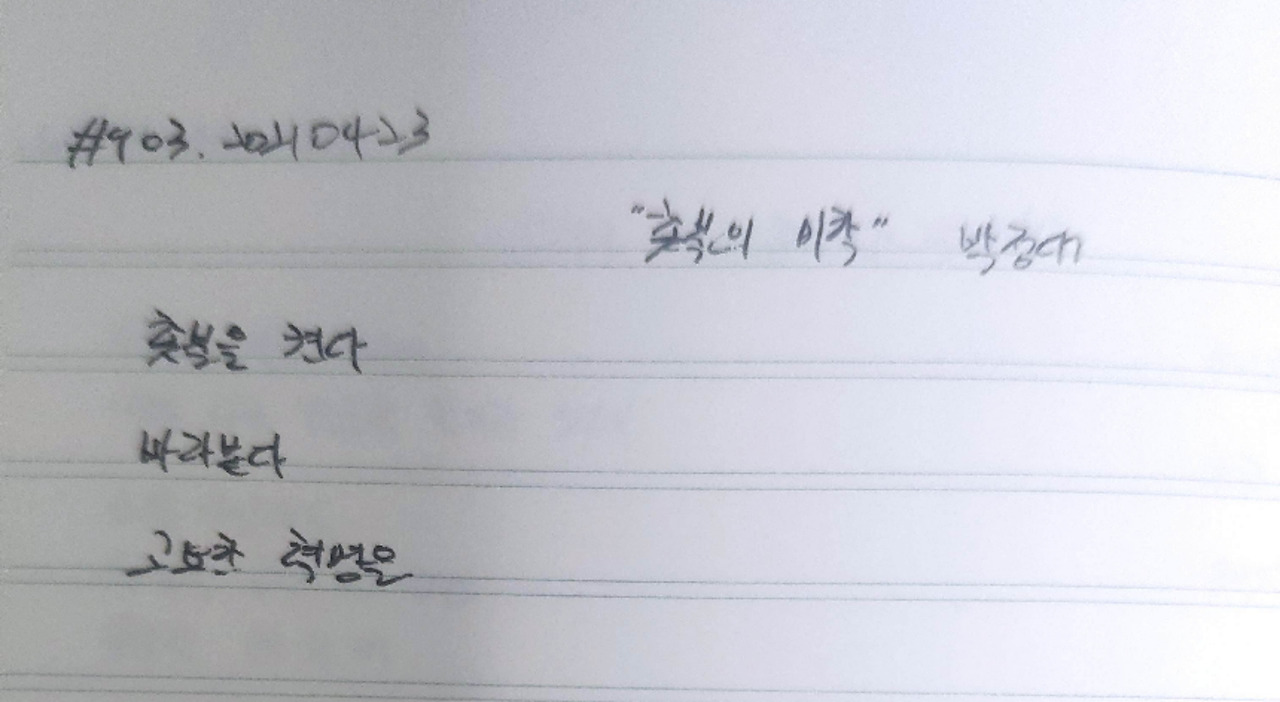 #903. 20210423
"촛불의 미학" 박정대
촛불을 켠다
바라본다
고요한 혁명을